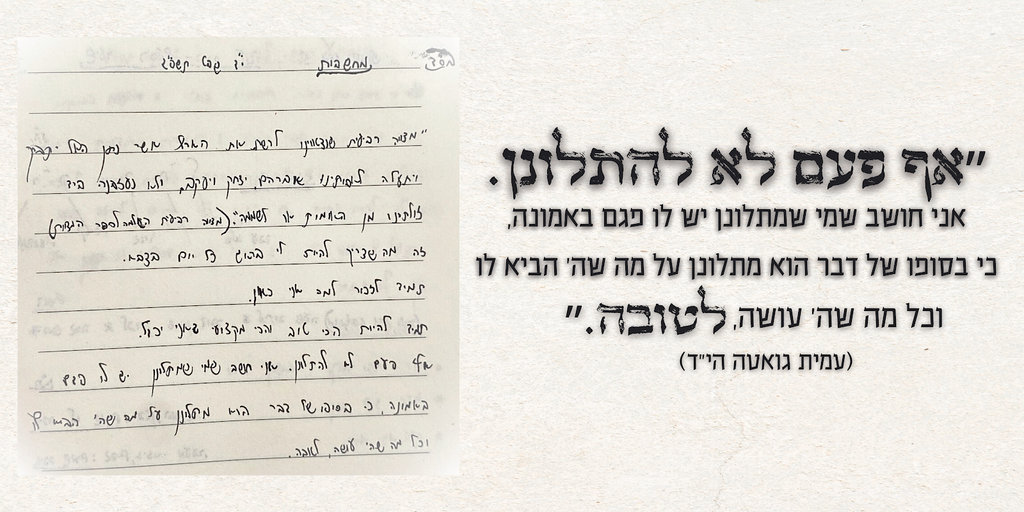 בס״ד
מחשבות
י״ג שבט תשפ״ג
"מצווה רביעית שנצטווינו לרשת את הארץ אשר נתן האל יתברך
ויתעלה לאבותינו אברהם, יצחק ויעקב, ולא נעזבנה ביד
זולתינו מן האומות או לשממה". (מצווה רביעית השלמה לספר המצוות)
זה מה שצריך להיות לי בראש כל יום בצבא.
תמיד לזכור למה אני כאן.
תמיד להיות הכי טוב והכי מקצועי שאני יכול.
אף פעם לא להתלונן. אני חושב שמי שמתלונן יש לו פגם
באמונה, כי בסופו של דבר הוא מתלונן על מה שה' הביא לו
וכל מה שה' עושה, לטובה.
"אף פעם לא להתלונן.
אני חושב שמי שמתלונן יש לו פגם באמונה,
כי בסופו של דבר הוא מתלונן על מה שה' הביא לו
וכל מה שה' עושה, לטובה."
(עמית גואטה הי"ד)